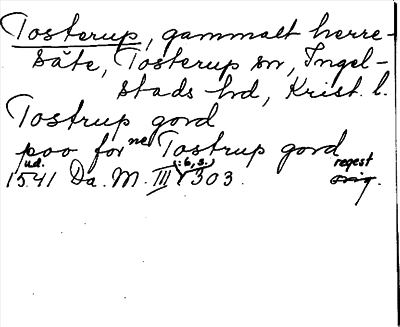 Tosterup, gammalt herre-
säte, Tosterup sn, Ingel-
stads hd, Krist. l.
Tostrup gord
poo for ne Tostrup gord
ud. (:6,s.) regest
1541 Da. M. III 303. orig.